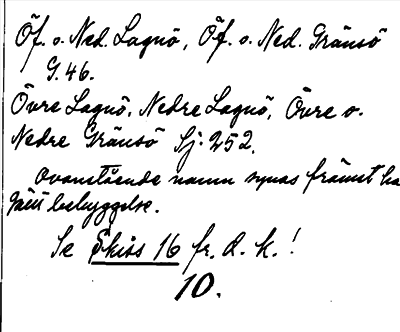 Öf. o. Ned. Lagnö, Öf. o. Ned. Gränsö
G. 46.
Övre Lagnö, Nedre Lagnö, Övre o.
Nedre Gränsö Sj. 252.
Ovanstående namn synas främst ha
gällt bebyggelse.
Se Skiss 16 fr. d. k.!
10.